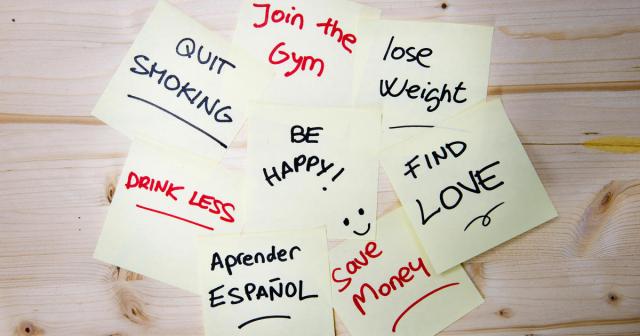 QUIT
SMOKING
Join the
Gym
lose
Weight
BE
HAPPY!
FIND
LOVE
DRINK LESS
Aprender
ESPAÑOL
Save
Money